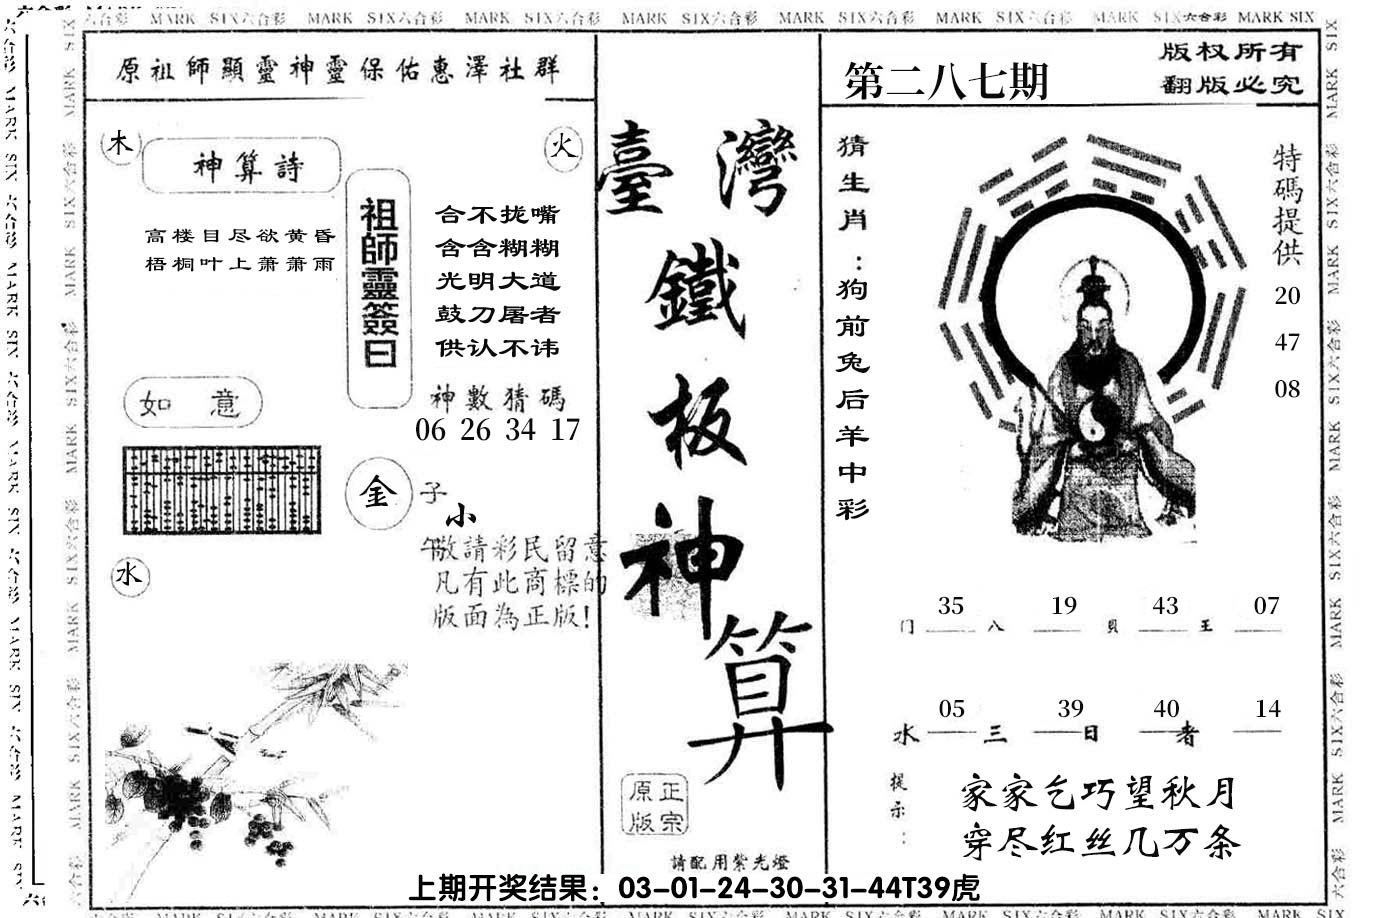 MARK SIX六合彩 MARK SIX六合彩 MARK SIX六合彩 MARK SIX六合彩 MARK SIX六合彩 MARK SIX六合彩 MARK SIX六合彩 MARK SIX
原祖師顯靈神靈保佑惠澤社群
木
神算詩
火
高楼目尽欲黄昏
梧桐叶上萧萧雨
祖師靈簽曰
合不拢嘴
含含糊糊
光明大道
鼓刀屠者
供认不讳
神數猜碼
06 26 34 17
如意
金
子
小
午
敬請彩民留意
凡有此商標的
版面為正版!
水
臺灣
鐵
板
神
算
正宗
原版
請配用紫光燈
第二八七期
版权所有
翻版必究
猜生肖:狗前兔后羊中彩
特碼提供
20
47
08
35 19 43 07
门 八 貝 王
05 39 40 14
水 三 日 者
提示:
家家乞巧望秋月
穿尽红丝几万条
上期开奖结果：03-01-24-30-31-44T39虎